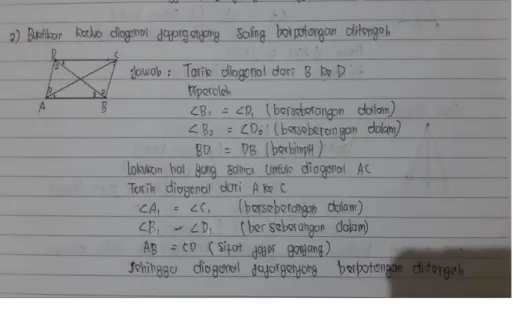 2) Buktikan kedua diagonal jajargenjang saling berpotongan ditengah
D C
A B
Jawab : Tarik diagonal dari B ke D
Diperoleh
∠B₁ = ∠D₁ (berseberangan dalam)
∠B₂ = ∠D₂ (berseberangan dalam)
BD = DB (berhimpit)
Lakukan hal yang sama untuk diagonal AC
Tarik diagonal dari A ke C
∠A₁ = ∠C₁ (berseberangan dalam)
∠B₁ = ∠D₁ (berseberangan dalam)
AB = CD (sifat jajar genjang)
Sehingga diagonal jajargenjang berpotongan ditengah